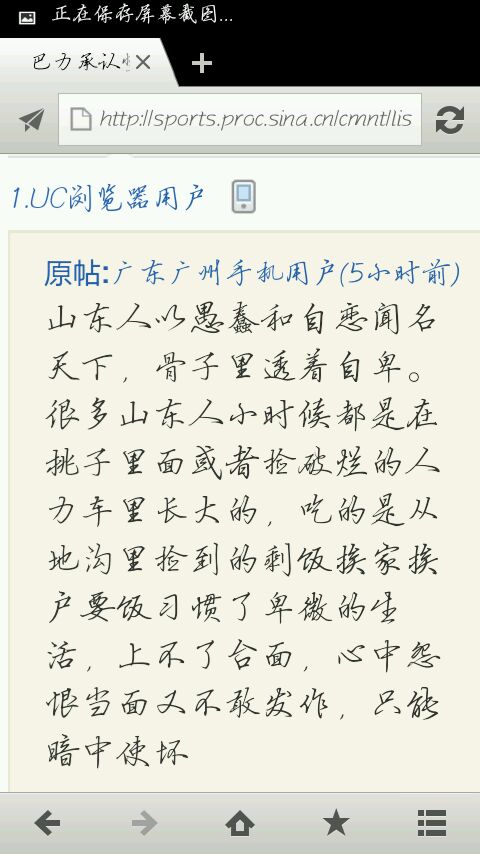 正在保存屏幕截图...
巴力承认
http://sports.proc.sina.cn/cmnt/lis
1.UC浏览器用户
原帖:广东广州手机用户(5小时前)
山东人以愚蠢和自恋闻名
天下，骨子里透着自卑。
很多山东人小时候都是在
挑子里面或者捡破烂的人
力车里长大的，吃的是从
地沟里捡到的剩饭挨家挨
户要饭习惯了卑微的生
活，上不了台面，心中怨
恨当面又不敢发作，只能
暗中使坏